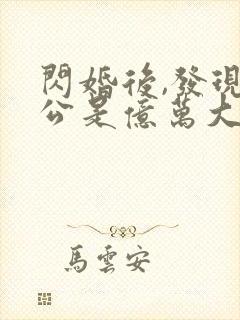 閃婚後,發現
公是億萬大
馬雲安